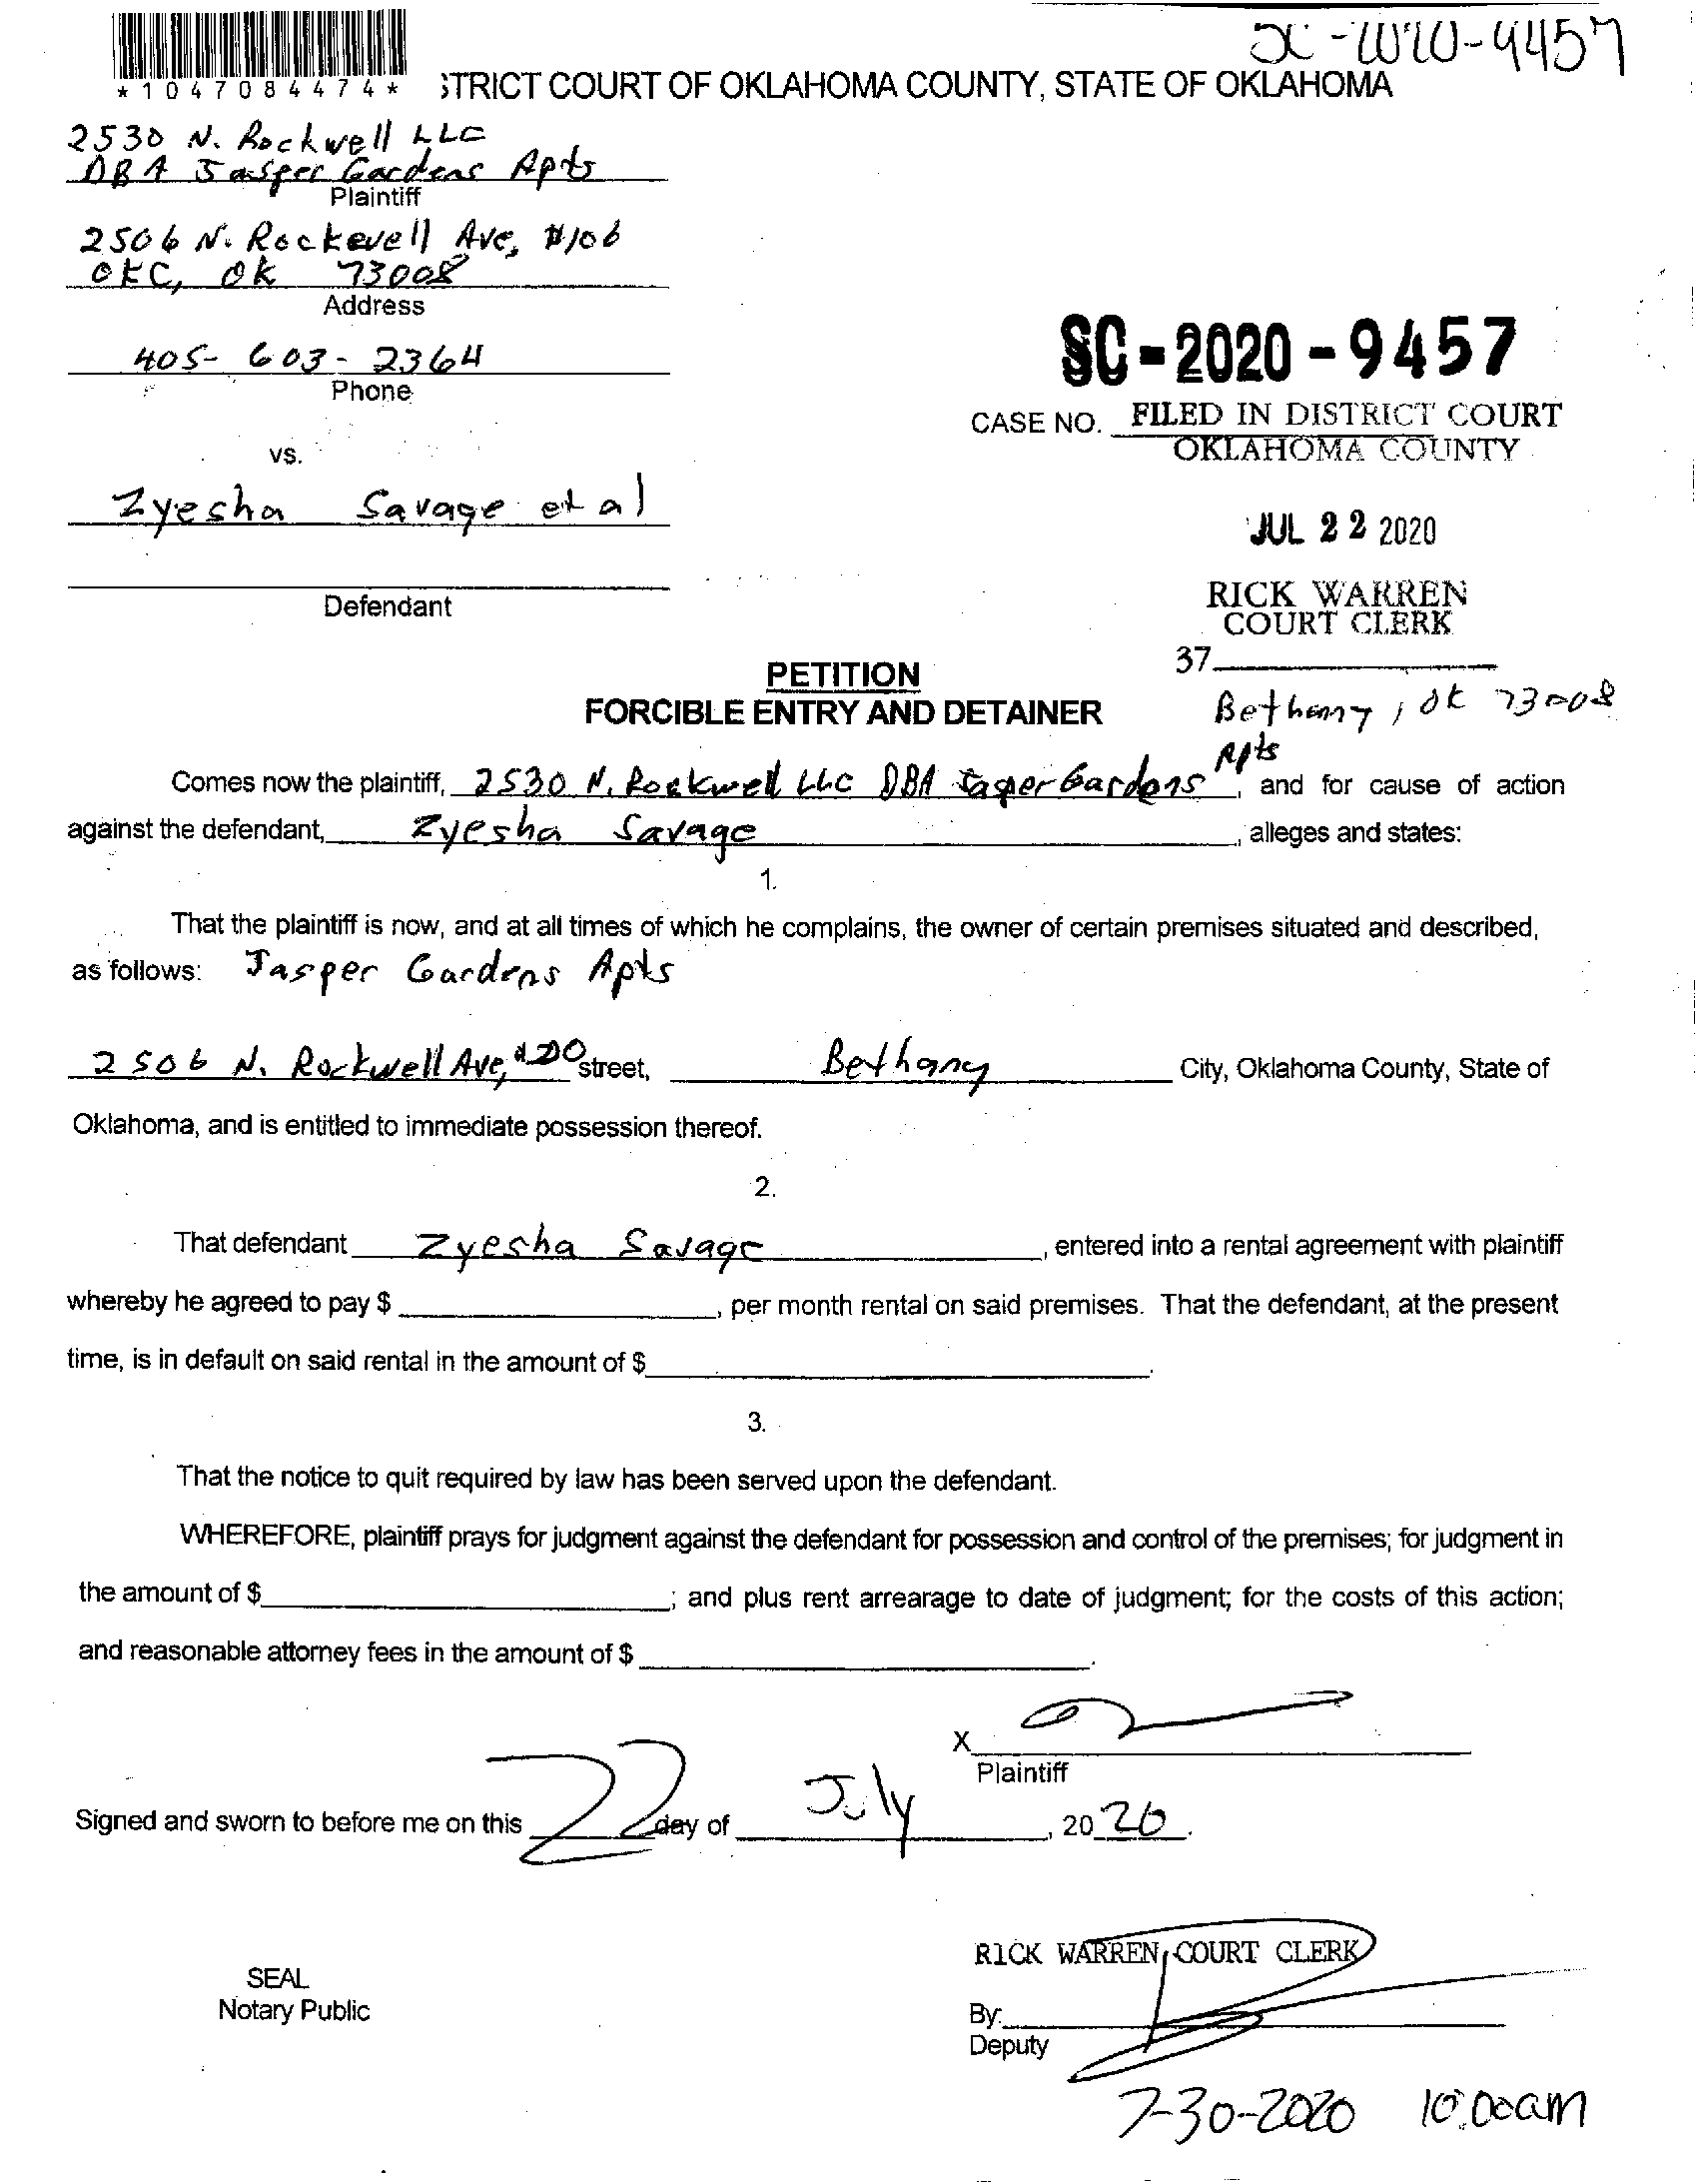 SC-2020-9457
*1047084474*
STRICT COURT OF OKLAHOMA COUNTY, STATE OF OKLAHOMA
2530 N. Rockwell LLC
DBA Jasper Gardens Apts
Plaintiff
2506 N. Rockwell Ave, #106
OKC, OK 73008
Address
405-603-2364
Phone
SC-2020-9457
CASE NO. FILED IN DISTRICT COURT
OKLAHOMA COUNTY
vs.
Zyesha Savage et al
JUL 22 2020
Defendant
RICK WARREN
COURT CLERK
37
PETITION
FORCIBLE ENTRY AND DETAINER
Bethany, OK 73008
Apts
Comes now the plaintiff, 2530 N. Rockwell LLC DBA Jasper Gardens, and for cause of action
against the defendant, Zyesha Savage, alleges and states:
1.
That the plaintiff is now, and at all times of which he complains, the owner of certain premises situated and described,
as follows: Jasper Gardens Apts
2506 N. Rockwell Ave, street, Bethany City, Oklahoma County, State of
Oklahoma, and is entitled to immediate possession thereof.
2.
That defendant Zyesha Savage, entered into a rental agreement with plaintiff
whereby he agreed to pay $, per month rental on said premises. That the defendant, at the present
time, is in default on said rental in the amount of $.
3.
That the notice to quit required by law has been served upon the defendant.
WHEREFORE, plaintiff prays for judgment against the defendant for possession and control of the premises; for judgment in
the amount of $; and plus rent arrearage to date of judgment; for the costs of this action;
and reasonable attorney fees in the amount of $.
X
Plaintiff
Signed and sworn to before me on this 22 day of July, 2020.
RICK WARREN, COURT CLERK
SEAL
Notary Public
By:
Deputy
7-30-2020 10:00am